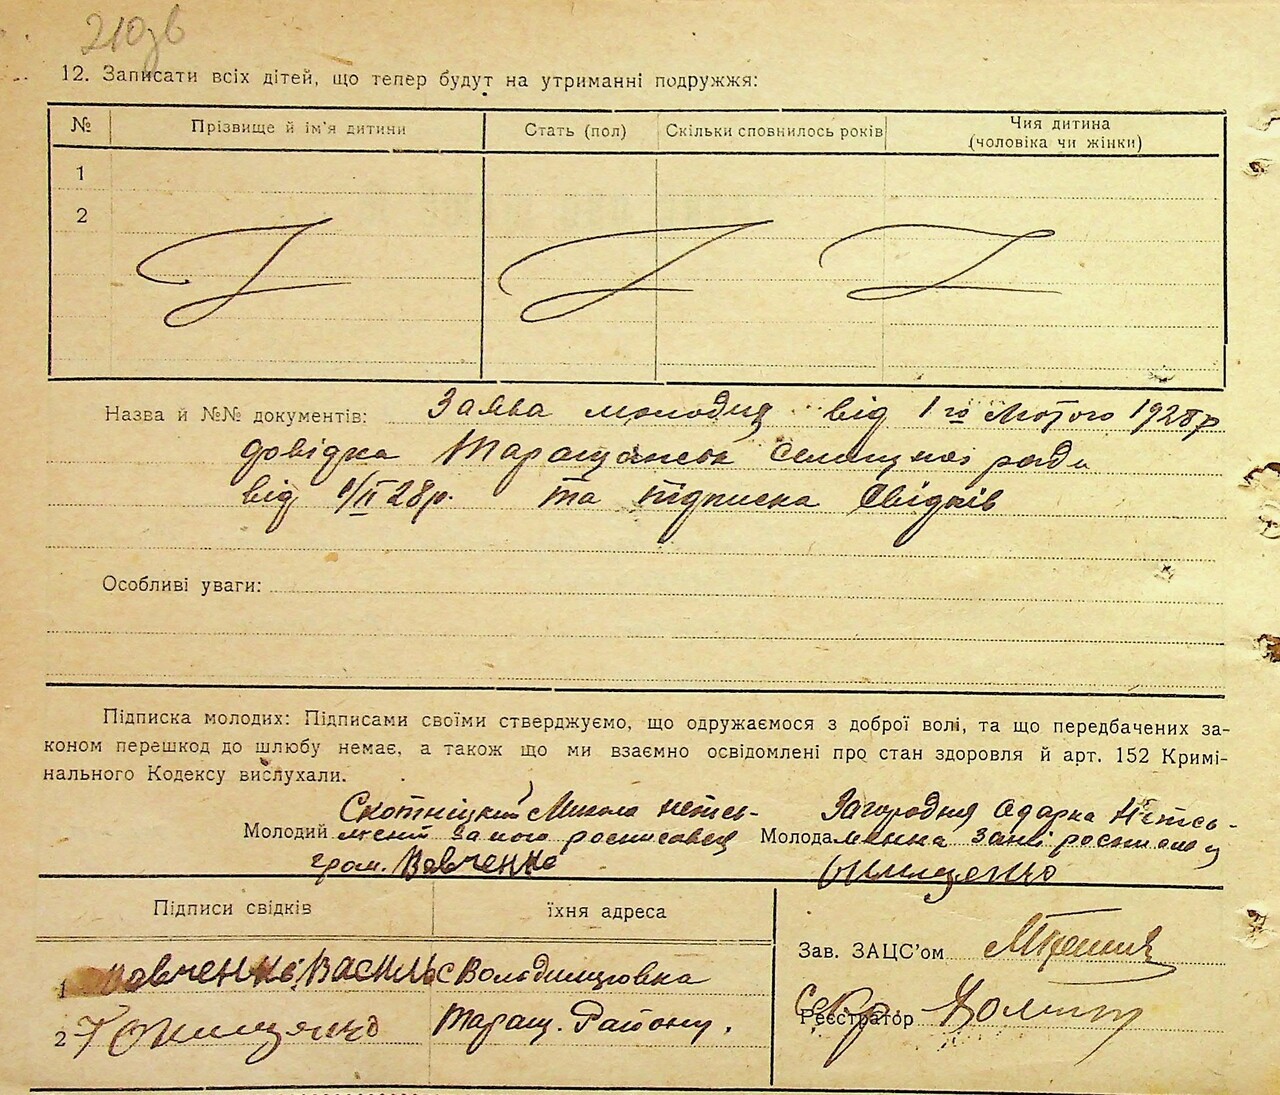 210зв
12. Записати всіх дітей, що тепер будут на утриманні подружжя:
№ Прізвище й ім'я дитини Стать (пол) Скільки сповнилось років Чия дитина
(чоловіка чи жінки)
1
2
Назва й №№ документів: Заява молодих від 1го Лютого 1928р
довідка Таращанськ Селищної ради
від 1/II 28р. та підписка Свідків
Особливі уваги:
Підписка молодих: Підписами своїми стверджуємо, що одружаємося з доброї волі, та що передбачених за-
коном перешкод до шлюбу немає, а також що ми взаємно освідомлені про стан здоровля й арт. 152 Кримі-
нального Кодексу вислухали.
Скотніцкий Микола непись-
Молодий менй за його росписався
гром. Вовченко
Загородня Одарка Непись-
Молода менна за неї росписався
Онищенко
Підписи свідків їхня адреса
1 Вовченко, Василь с Володимировка
2 Г Онищенко Таращ. Району.
Зав. ЗАЦС'ом
Секр.
Реєстратор